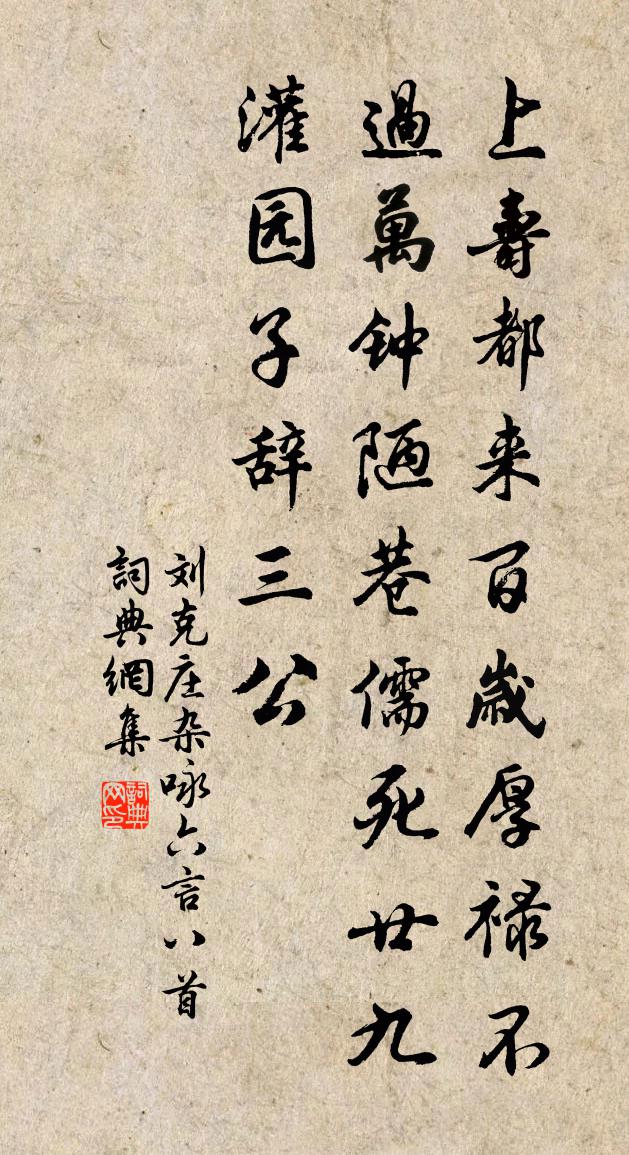 上壽都来百歲厚禄不
過萬钟陋巷儒死廿九
灌园子辞三公
刘克庄杂咏六言八首
詞典網集
詞典网印